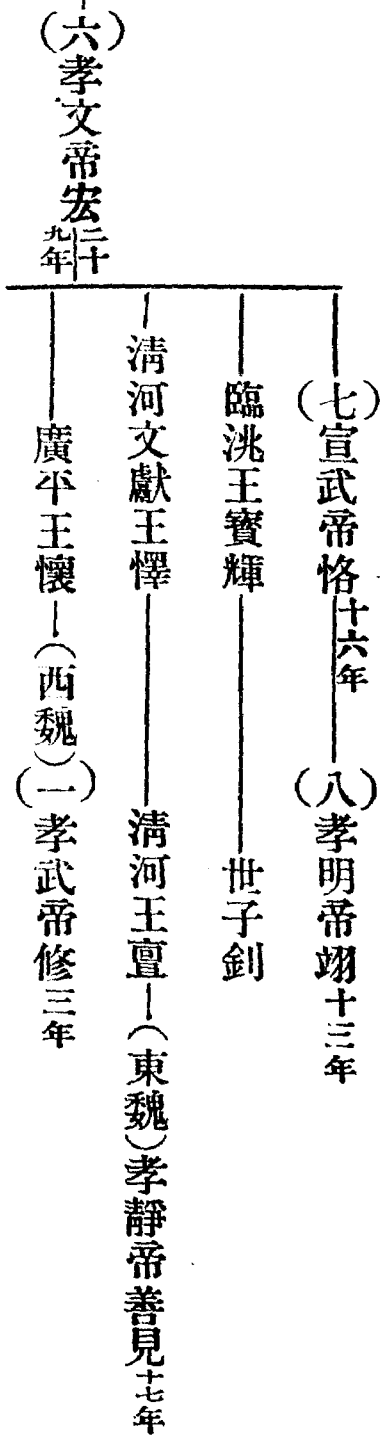 （六）孝文帝宏二十九年
（七）宣武帝恪十六年
（八）孝明帝翊十三年
臨洮王寳輝
世子釗
淸河文獻王懌
淸河王亶（東魏）孝靜帝善見十七年
廣平王懷（西魏）（一）孝武帝修三年